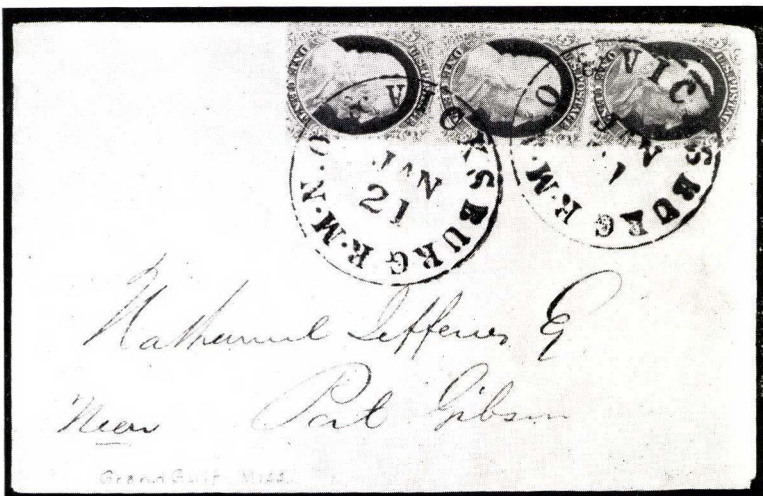 N. O. & VICKSBURG R. M.
JAN
21
VICKSBURG R. M.
Nathaniel Jefferies
Near Port Gibson
Grand Gulf Miss.